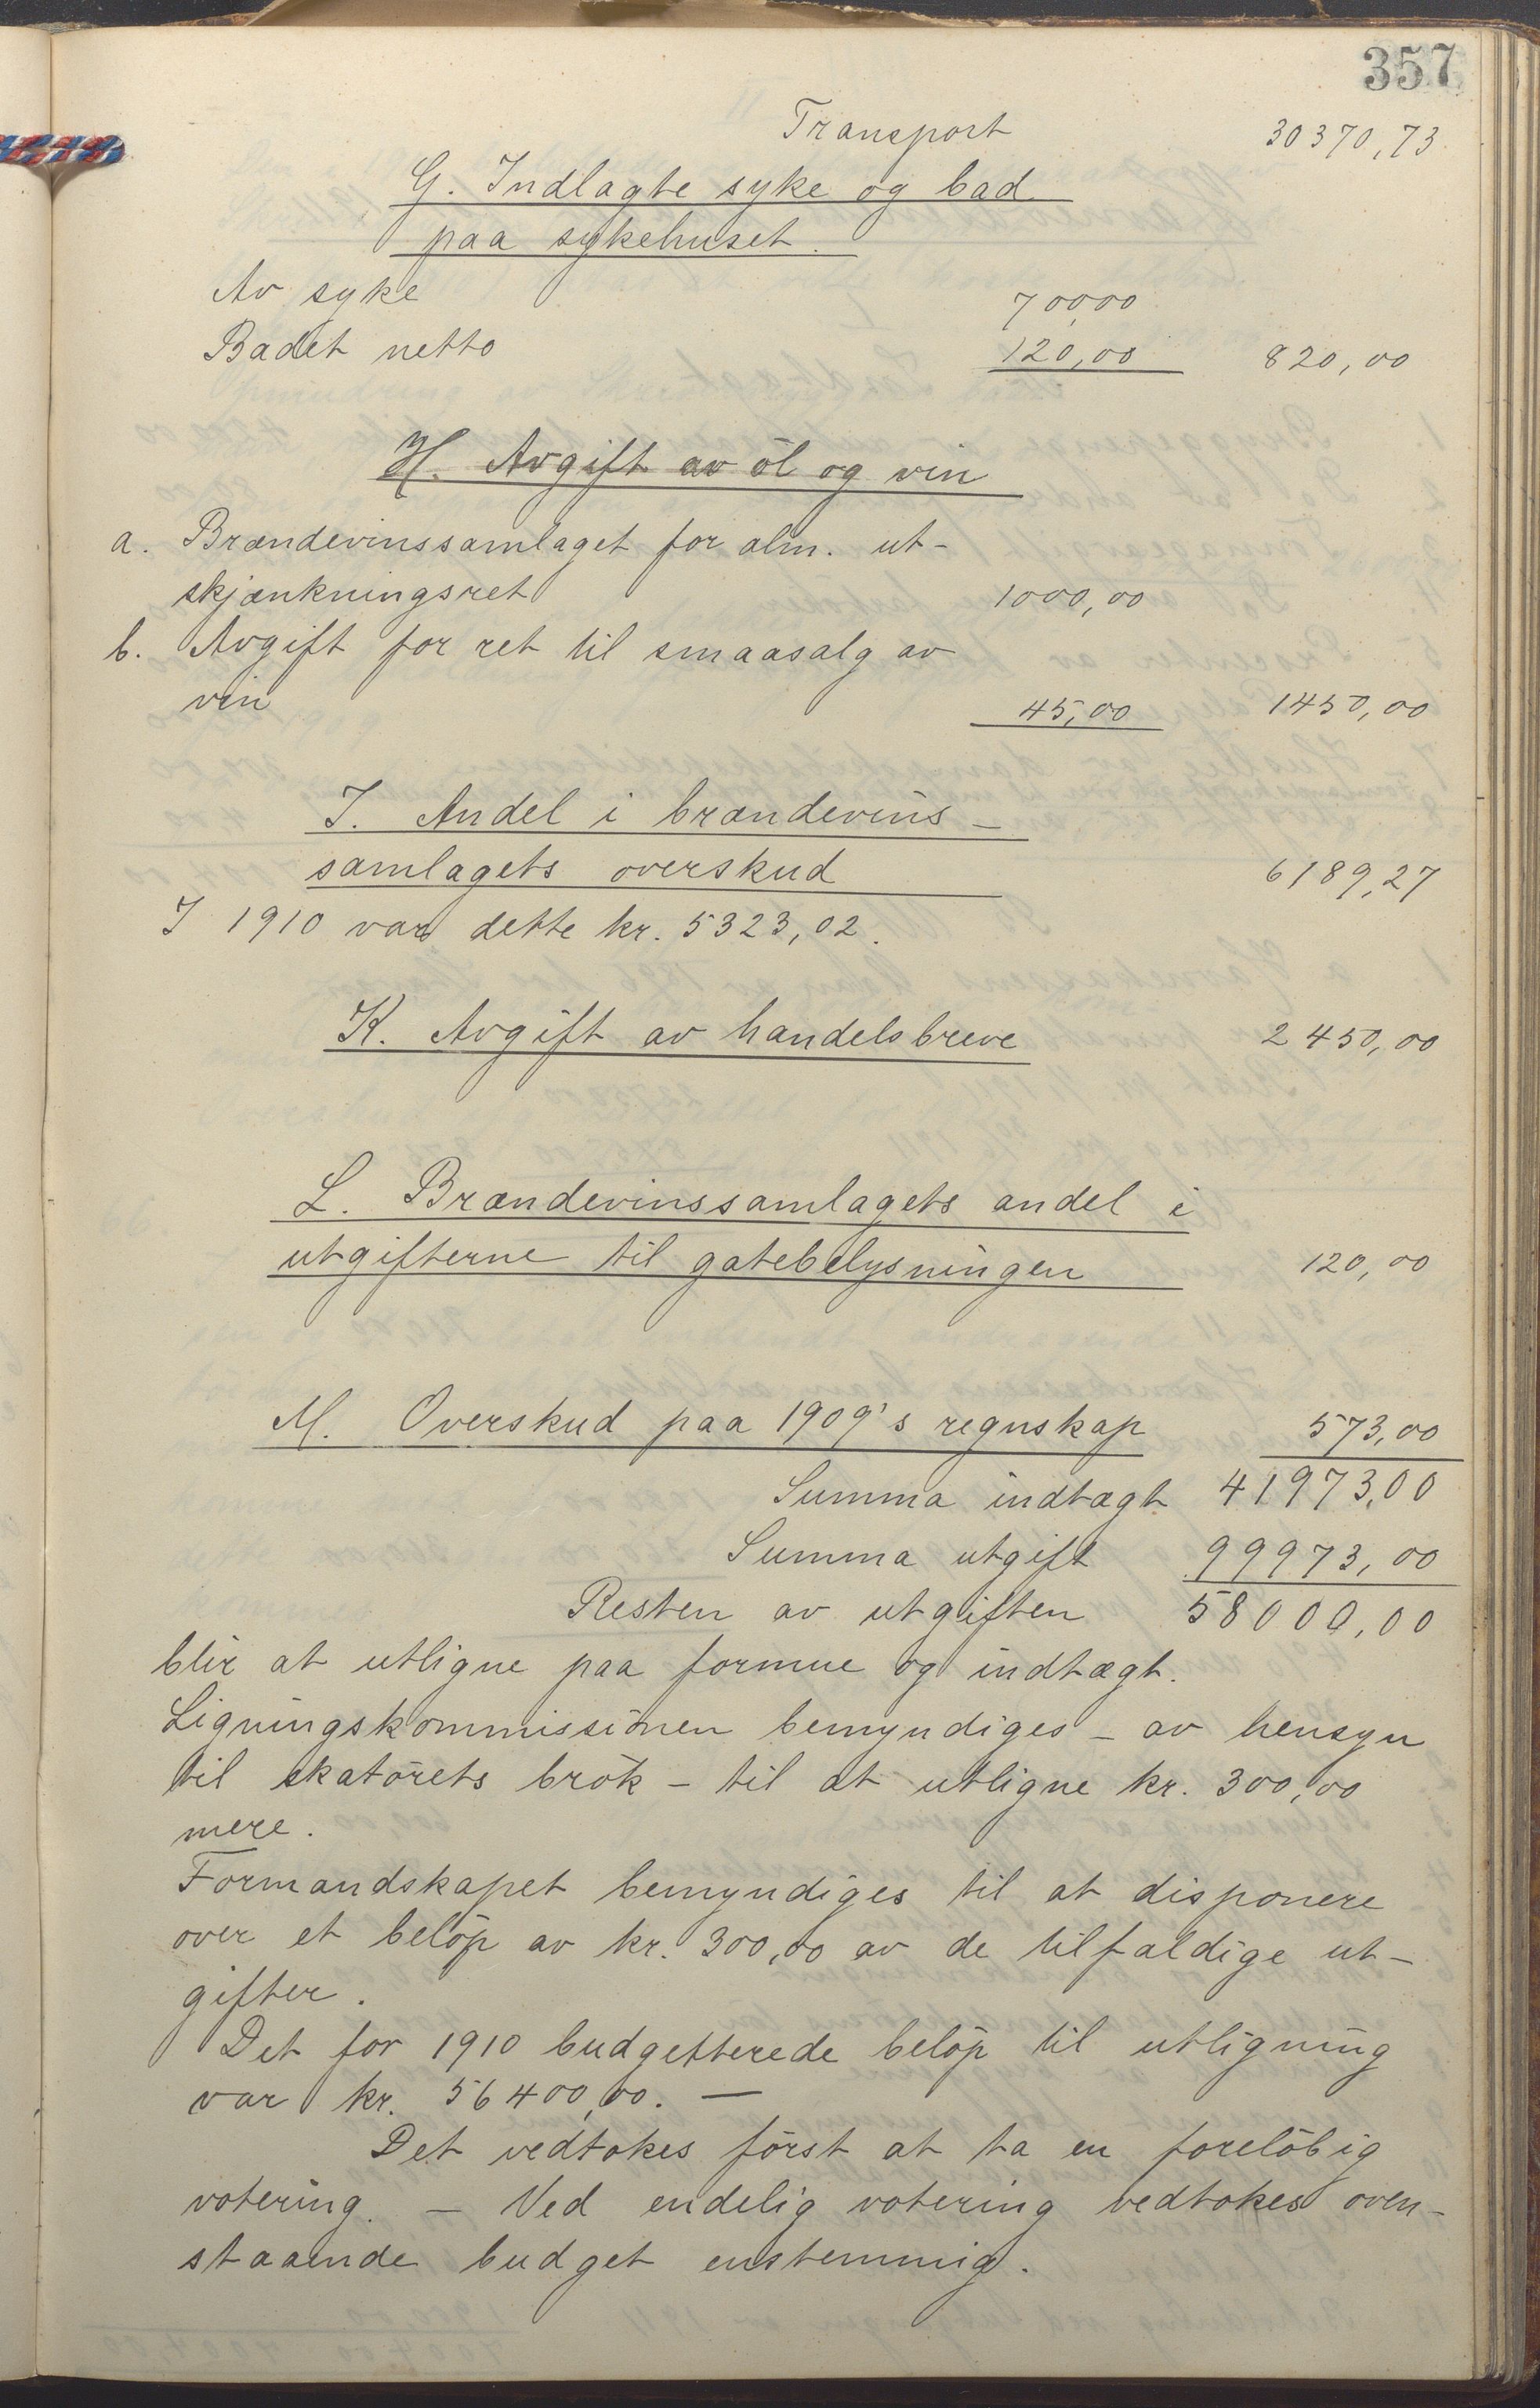 357
Transport 30370,73
G. Indlagte syke og bad
paa sykehuset.
Av syke 700,00
Badet netto 120,00 820,00
H. Avgift av öl og vin
a. Brændevinssamlaget for alm. ut-
skjænkningsret 1000,00
b. Avgift for ret til smaasalg av
vin 45,00 1450,00
I. Andel i brændevins-
samlagets overskud 6189,27
I 1910 var dette kr. 5323,02.
K. Avgift av handelsbreve 2450,00
L. Brændevinssamlagets andel i
utgifterne til gatebelysningen 120,00
M. Overskud paa 1909's regnskap 573,00
Summa indtægt 41973,00
Summa utgift 99973,00
Resten av utgiften 58000,00
blir at utligne paa formue og indtægt.
Ligningskommissionen bemyndiges - av hensyn
til skatörets brök - til at utligne kr. 300,00
mere.
Formandskapet bemyndiges til at disponere
over et belöp av kr. 300,00 av de tilfældige ut-
gifter.
Det for 1910 budgetterede belöp til utligning
var kr. 56400,00. —
Det vedtokes först at ta en forelöbig
votering. — Ved endelig votering vedtokes oven-
staaende budget enstemmig.